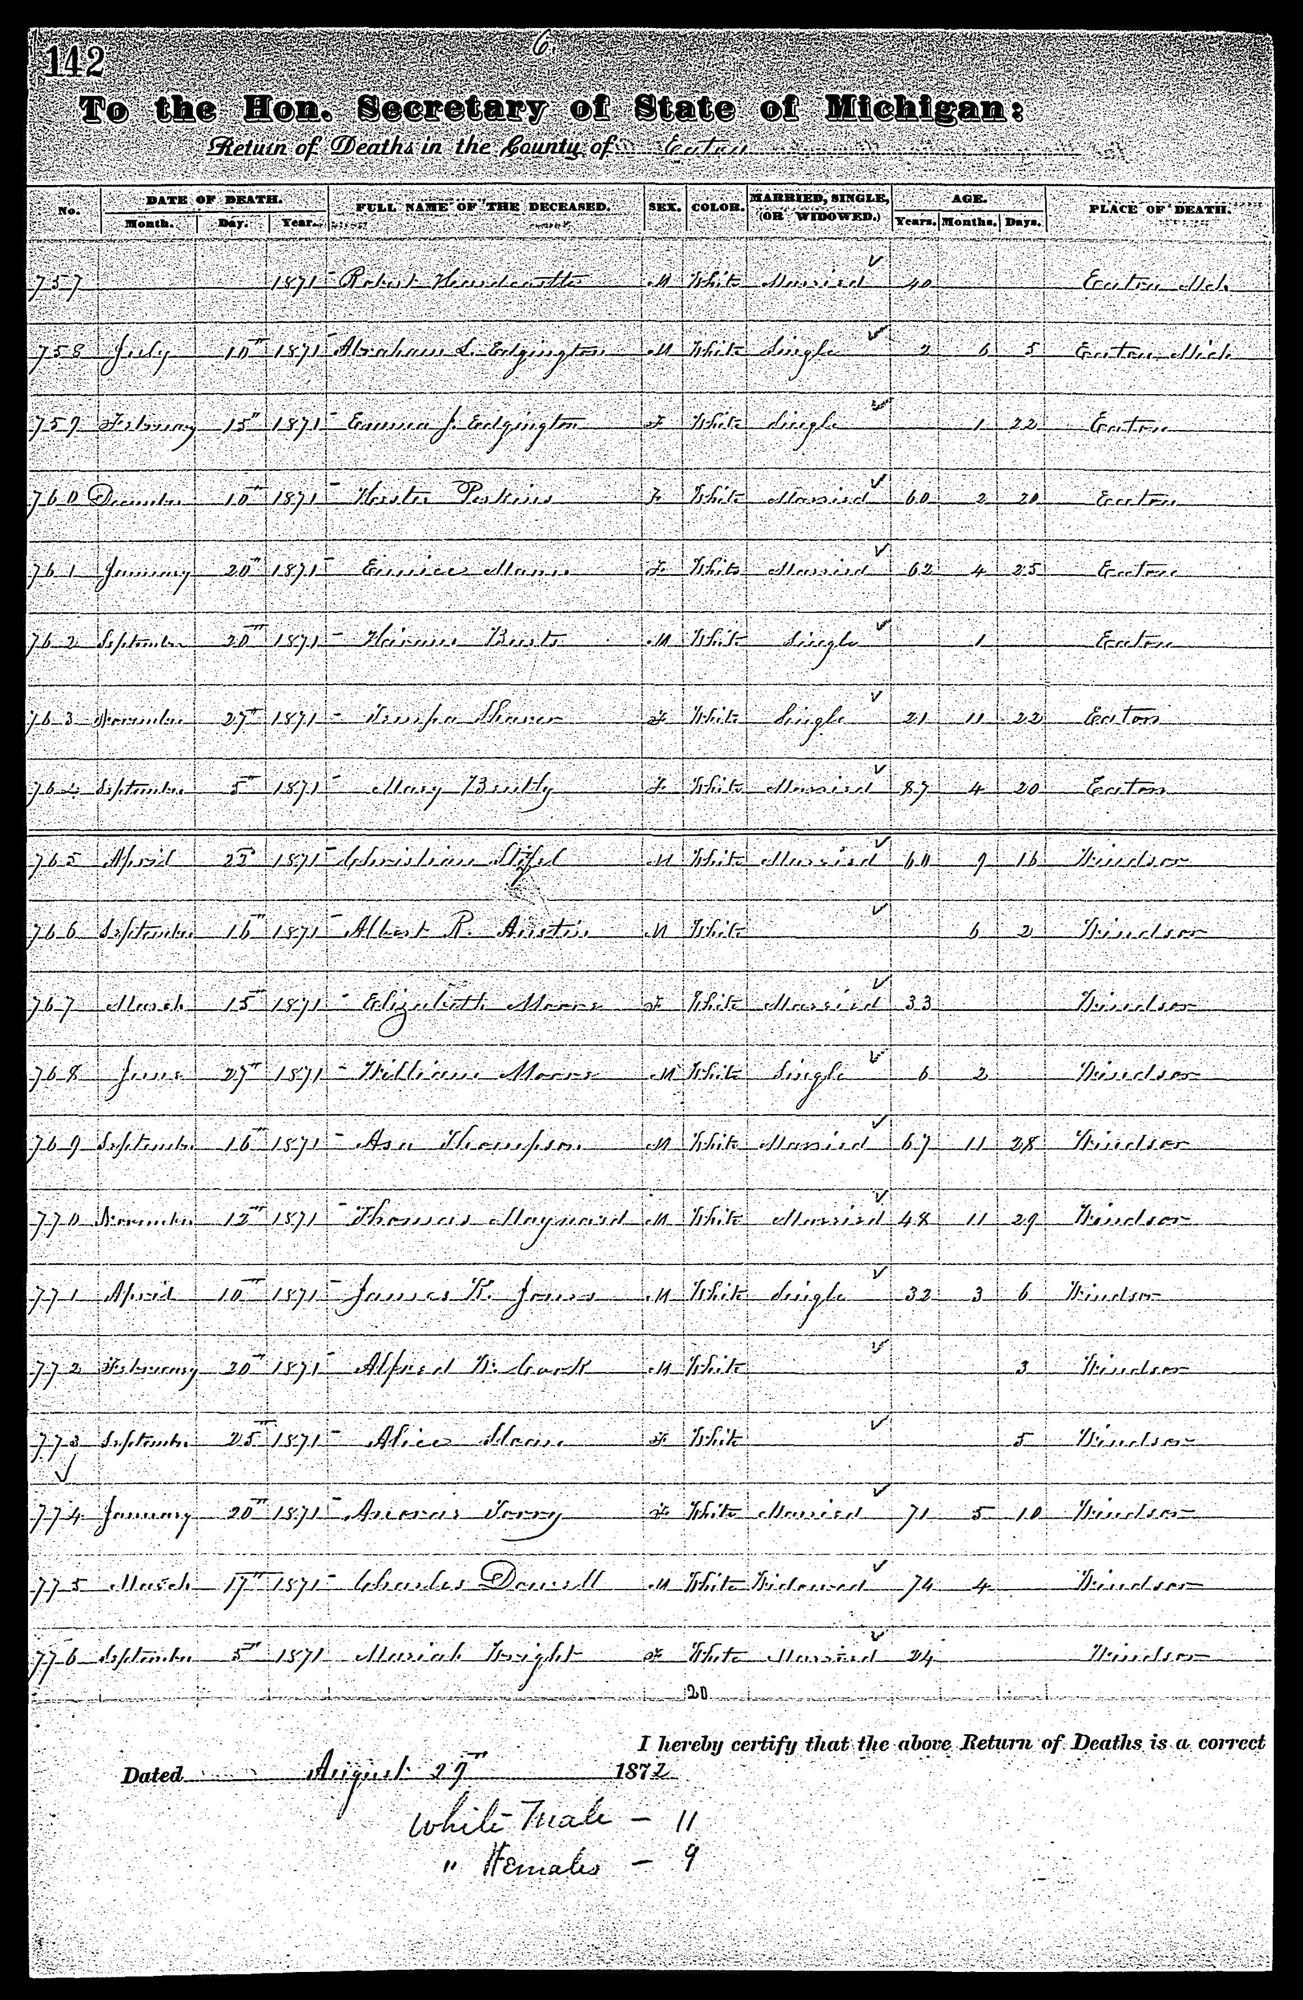 142
6.
To the Hon. Secretary of State of Michigan:
Return of Deaths in the County of Eaton
No. DATE OF DEATH. FULL NAME OF THE DECEASED. SEX. COLOR. MARRIED, SINGLE, (OR WIDOWED.) AGE. PLACE OF DEATH.
Month. Day. Year. Years. Months. Days.
757 1871 Robert Hardcastle M White Married 40 Eaton Mch
758 July 10th 1871 Abraham L. Edgington M White Single 2 6 5 Eaton Mich
759 February 15" 1871 Emma J. Edgington F White Single 1 22 Eaton
760 December 10th 1871 Hester Perkins F White Married 60 2 20 Eaton
761 January 20" 1871 Eunice Mann F White Married 62 4 25 Eaton
762 September 20th 1871 Hiram White Single 1 Eaton
763 November 27th 1871 Shaver F White Single 21 11 22 Eaton
764 September 5th 1871 Mary F White Married 87 4 20 Eaton
765 April 23 1871 Christian M White Married 60 9 16 Windsor
766 September 16th 1871 Albert R. Austin M White 6 2 Windsor
767 March 15th 1871 Elizabeth Moore F White Married 33 Windsor
768 June 27th 1871 William Moore M White Single 6 2 Windsor
769 September 16th 1871 Asa Thompson M White Married 67 11 28 Windsor
770 November 12th 1871 Thomas Maynard M White Married 48 11 29 Windsor
771 April 10th 1871 James K. Jones M White Single 32 3 6 Windsor
772 February 20th 1871 Alfred W. Cook M White 3 Windsor
773 September 25th 1871 Alice Sloan F White 5 Windsor
774 January 20th 1871 Torry F White Married 71 5 10 Windsor
775 March 17th 1871 Charles Dowell M White Widowed 74 4 Windsor
776 September 5th 1871 Mariah Wright F White Married 24 Windsor
20
I hereby certify that the above Return of Deaths is a correct
Dated August 29th 1872
White Male – 11
" Females – 9